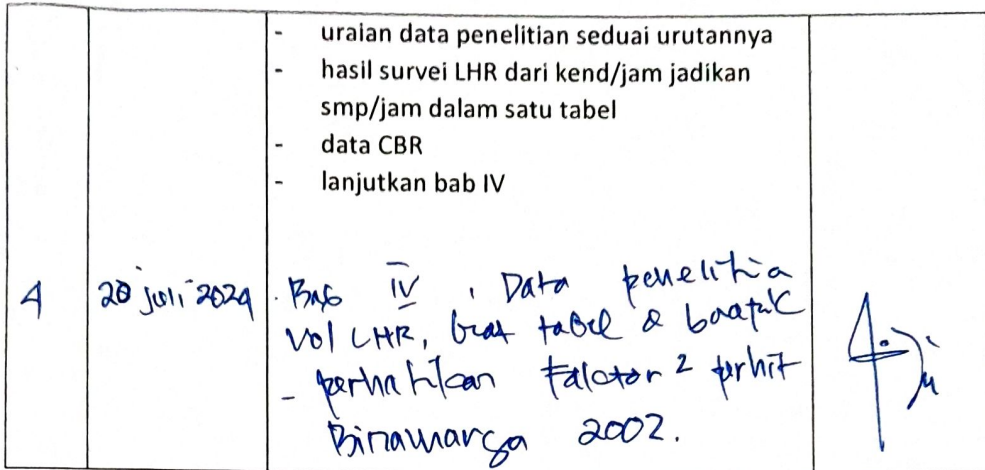 - uraian data penelitian seduai urutannya
- hasil survei LHR dari kend/jam jadikan
smp/jam dalam satu tabel
- data CBR
- lanjutkan bab IV
4 20 juli 2024 . Bab IV , Data penelitia
Vol LHR, buat tabel & grafik
- perhatikan faktor 2 perhit
Binamarga 2002.